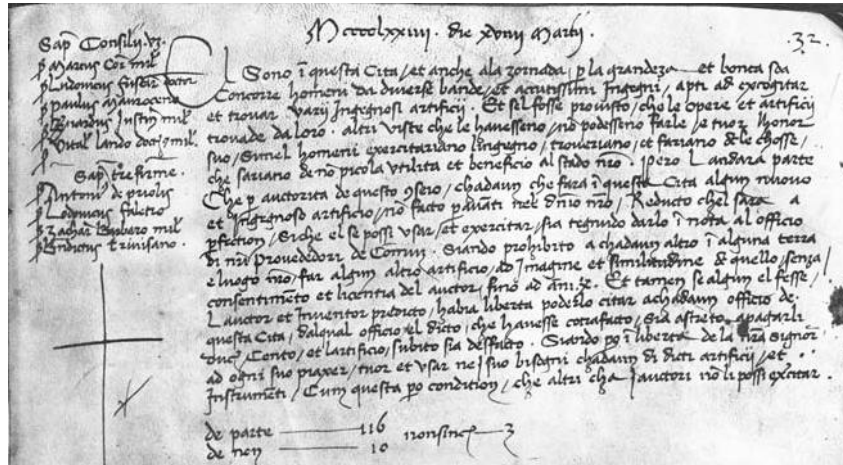 Mcccclxxiiii. die xviiii Martii.
32.
Sapientes Consilii
Marcus Cor. mil
Ludovicus fuscar. doctor
paulus mauroceno
Bernardus Justin. mil
Vital lando doct. mil.
Sap. tre firme.
Antonius de priolis
Lodovicus faletro
Zachar. barbaro mil
Bndictus trivisano.
El Sono i questa Cita, et anche ala zornada, p la grandeza et bonta soa
Concorre homeni da diverse bande, et accutissimi Ingegni, apti ad excogitar
et trovar varij Ingegnosi artificij. Et sel fosse provisto, che le opere et artificij
trovade da loro. altri viste che le havesseno, no podesseno farle, e tuor honor
suo, Simel homeni exercitariano lingegno, troveriano, et fariano de le chosse,
che sariano de no picola utilita et beneficio al stado nro. Pero L andara parte
Che p auctorita de questo 9seio, chadaun che fara i questa Cita algun nuovo
et Ingegnoso artificio, no facto p avanti nel dnio nro, Reducto chel sara a
pfection, Siche el se possi usar, et exercitar, sia tegnudo darlo i nota al officio
di nri provededori de Comun. Siando prohibito a chadaun altro i alguna terra
e luogo nro, far algun altro artificio, ad Imagine et similitudine de quello, senza
consentimeto et licentia del auctor, fino ad ani .x. Et tamen se algun el fesse,
L auctor et Inventor predicto, habia liberta poderlo citar a chadaun officio de
questa Cita, dalqual officio el dicto, che havesse cotrafacto, sia astreto apagarli
duc. Cento, et lartificio, subito sia desfacto. Siando po i liberta de la nra Signor.
ad ogni suo piaxer, tuor et usar nei suo bisogni chadaun di dicti artificij, et
Instrumeti, Cum questa po condition, che altri cha i auctori no li possi exercitar.
de parte 116
de non 10
nonsince 3